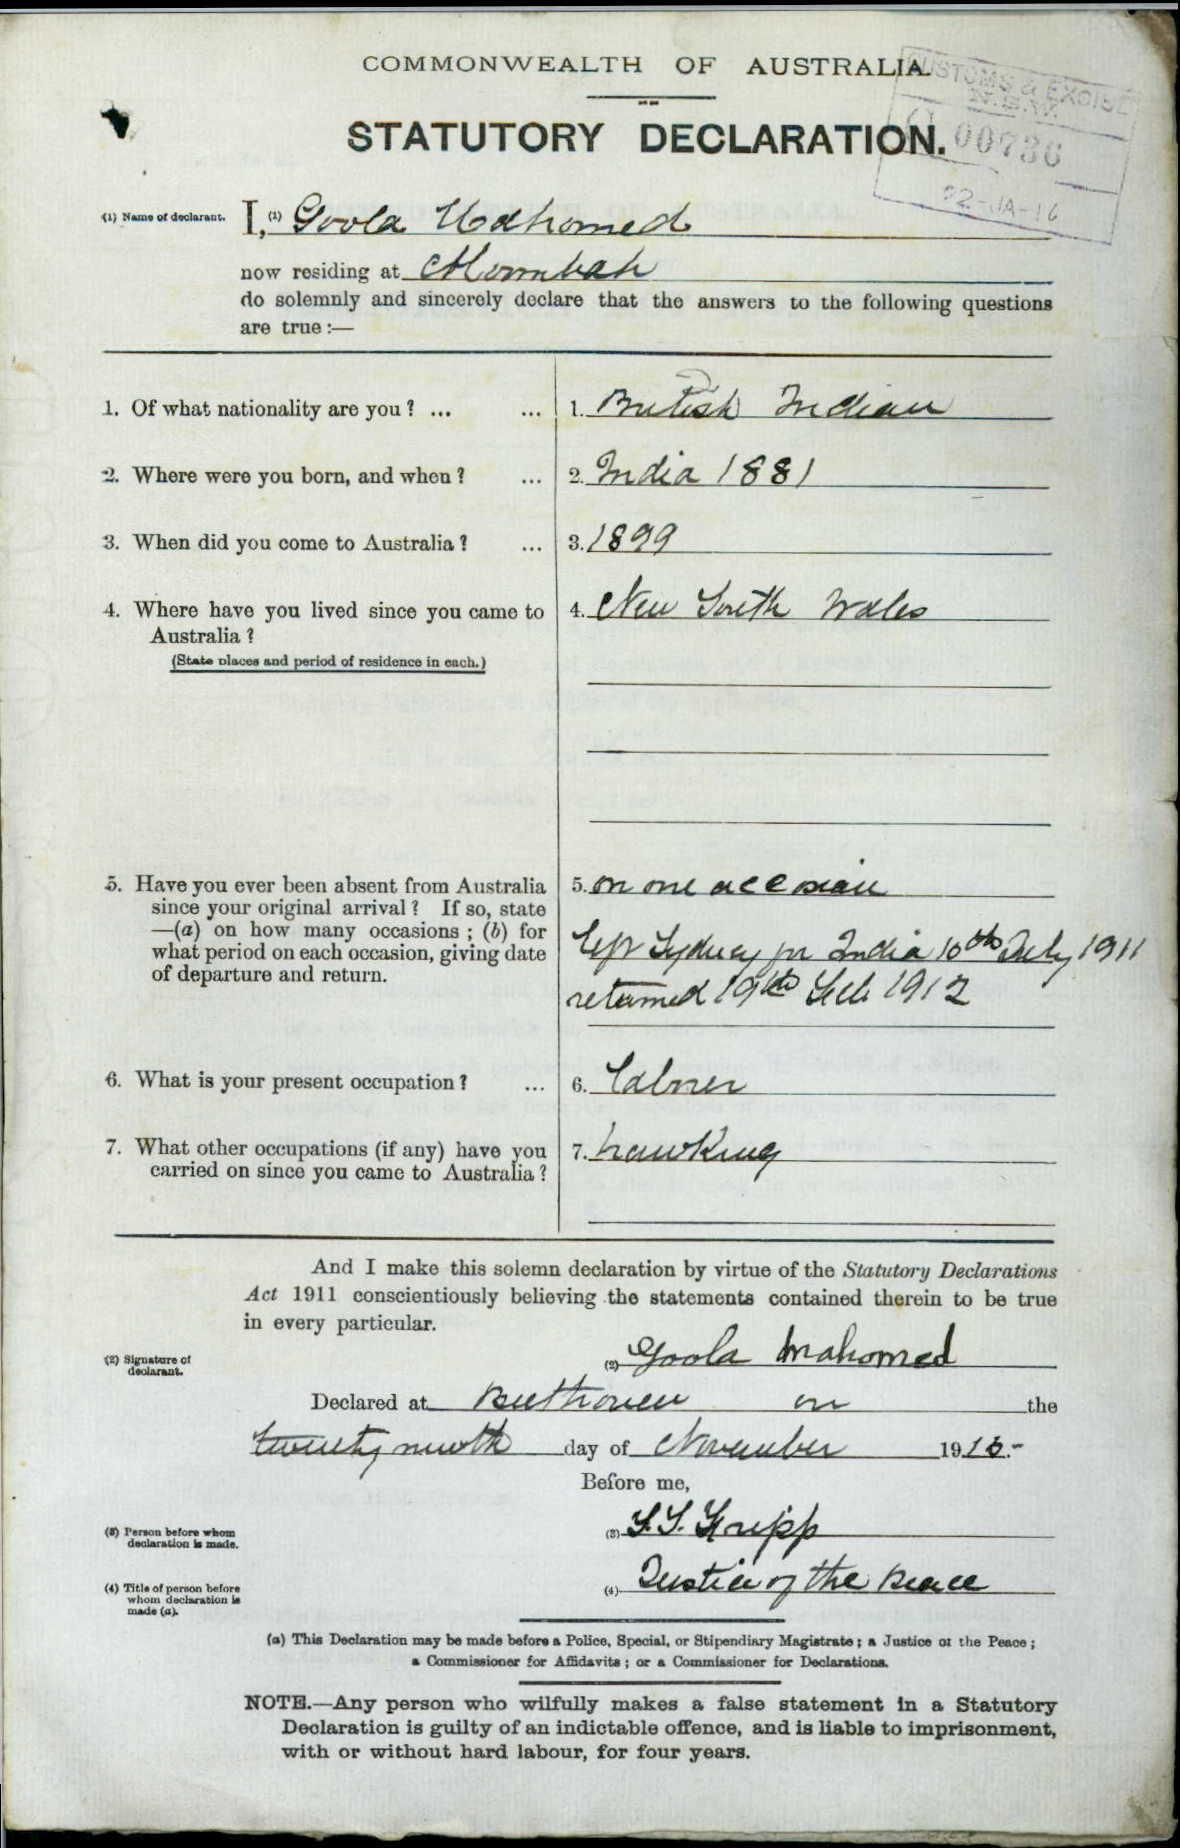 COMMONWEALTH OF AUSTRALIA.
STATUTORY DECLARATION.
CUSTOMS & EXCISE
N.S.W.
00736
22-JA-16
(1) Name of declarant.
I, (1) Goola Mahomed
now residing at
do solemnly and sincerely declare that the answers to the following questions
are true :—
1. Of what nationality are you ? ... ... 1. British Indian
2. Where were you born, and when ? ... 2. India 1881
3. When did you come to Australia ? ... 3. 1899
4. Where have you lived since you came to 4. New South Wales
Australia ?
(State places and period of residence in each.)
5. Have you ever been absent from Australia 5. on one accosion
since your original arrival ? If so, state
—(a) on how many occasions ; (b) for
what period on each occasion, giving date
of departure and return.
left Sydney for India 10th July 1911
returned 19th Feb 1912
6. What is your present occupation ? ... 6. Labrer
7. What other occupations (if any) have you 7. hawking
carried on since you came to Australia ?
And I make this solemn declaration by virtue of the Statutory Declarations
Act 1911 conscientiously believing the statements contained therein to be true
in every particular.
(2) Signature of
declarant.
(2) Goola Mahomed
Declared at on the
twenty ninth day of November 1915.-
Before me,
(3) Person before whom
declaration is made.
(3)
(4) Title of person before
whom declaration is
made (a).
(4) Justice of the Peace
(a) This Declaration may be made before a Police, Special, or Stipendiary Magistrate ; a Justice of the Peace ;
a Commissioner for Affidavits ; or a Commissioner for Declarations.
NOTE.—Any person who wilfully makes a false statement in a Statutory
Declaration is guilty of an indictable offence, and is liable to imprisonment,
with or without hard labour, for four years.